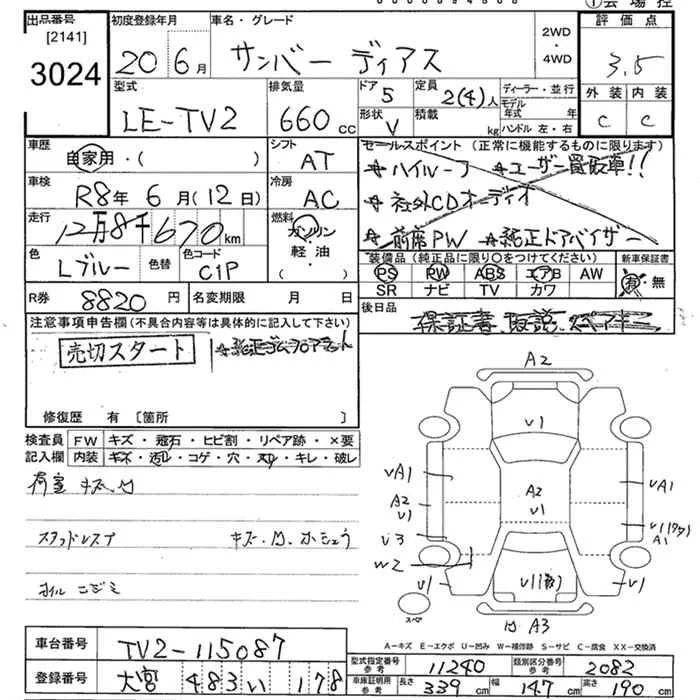 出品番号 初度登録年月 車名・グレード 評価点
[2141]
3024
20年 6月 サンバー ディアス 2WD・4WD 3.5
型式 排気量 ドア 5 定員 2(4)人 ディーラー・並行 外装 内装
LE-TV2 660cc 形状 V 積載 kg モデル年式 年 ハンドル 左・右 C C
車歴 シフト セールスポイント(正常に機能するものに限ります)
自家用・( ) AT ハイルーフ ユーザー買取車!!
車検 冷房 社外CDオーディオ
R8年 6月(12日) AC
走行 燃料 前席PW 純正ドアバイザー
12万8千670km ガソリン・軽油・( )
色 色替 色コード 装備品(純正品に限り○をつけてください) 新車保証書
Lブルー C1P PS PW ABS エアB AW 有・無
SR ナビ TV カワ
R券 8820円 名変期限 月 日 後日品 保証書
注意事項申告欄(不具合内容等は具体的に記入して下さい)
売切スタート
修復歴 有 [箇所 ]
検査員記入欄 FW キズ・飛石・ヒビ割・リペア跡・×要
内装 キズ・汚れ・コゲ・穴・スリ・キレ・破レ
荷室 キズ
オイル ニジミ
A2
V1
VA1
A2
V1
V3
W2
V1
A2
V1
VA1
A1
V1
スペア
A3
A-キズ E-エクボ U-凹み W-補修跡 S-サビ C-腐食 XX-交換済
車台番号 TV2-115087
型式指定番号参考 11240 類別区分番号参考 2082
登録番号 大宮 483 い 178
車庫証明用参考 長さ 339cm 幅 147cm 高さ 190cm